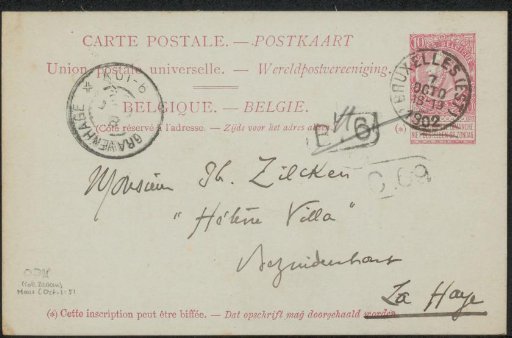 CARTE POSTALE. — POSTKAART
Union postale universelle. — Wereldpostvereeniging.
BELGIQUE. — BELGIË.
(Côté réservé à l'adresse. — Zijde voor het adres
10
BRUXELLES (EST)
7
OCTO
18-19
1902
GRAVENHAGE
Monsieur Ph. Zilcken
"Hélène Villa"
Bezuidenhout
La Haye
(*) Cette inscription peut être biffée. — Dat opschrift mag doorgehaald worden.